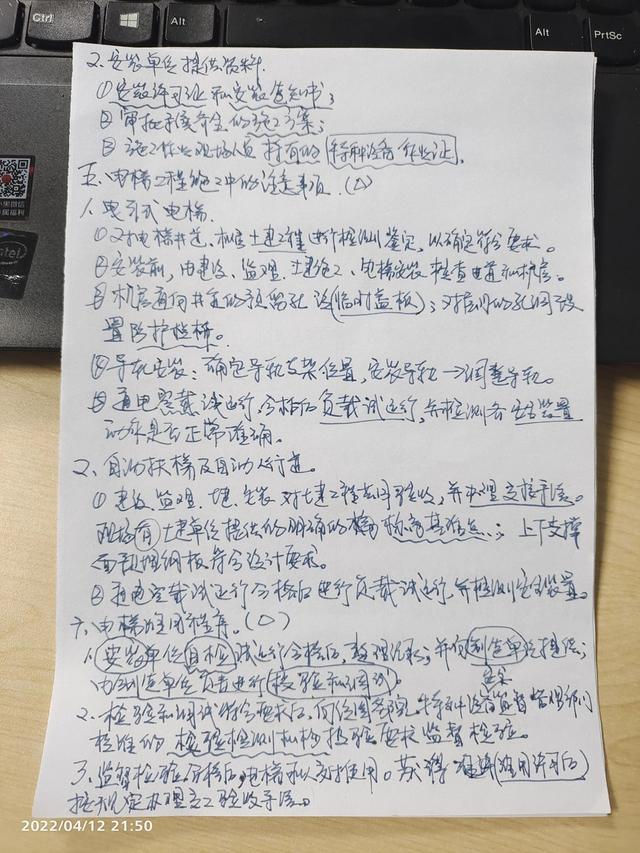 Ctrl
Alt
Alt
PrtSc
intel
2.安装单位提供资料.
①安装许可证和安装告知书;
②审批手续齐全的施工方案;
③施工作业现场人员持有的特种设备作业证.
五、电梯工程施工中的注意事项.(△)
1、曳引式电梯.
①对电梯井道、机房土建工程进行检测鉴定,以确定符合要求。
②安装前,由建设、监理、土建施工、电梯安装检查井道和机房。
③机房通向井道的预留孔设(临时盖板);对层门的孔洞设
置防护栏杆。
④导轨安装:确定导轨支架位置,安装导轨→调整导轨。
⑤通电空载试运行合格后负载试运行,并检测各安全装置
动作是否正常准确。
2、自动扶梯及自动人行道。
①建设、监理、土建、安装对土建工程共同验收,并办理交接手续。
现场有土建单位提供的明确的标高基准点;上下支撑
面预埋钢板符合设计要求。
②通电空载试运行合格后进行负载试运行,并检测安全装置。
六、电梯准用程序.(△)
1.安装单位自检试运行合格后,整理记录;并向制造单位提供;
由制造单位负责进行校验和调试。
安全
2、检验和调试符合要求后,向经国务院特种设备监督管理部门
核准的检验检测机构报验要求监督检验。
3、监督检验合格后,电梯可以交付使用。获得准用许可后
按规定办理竣工验收手续。
2022/04/12 21:50